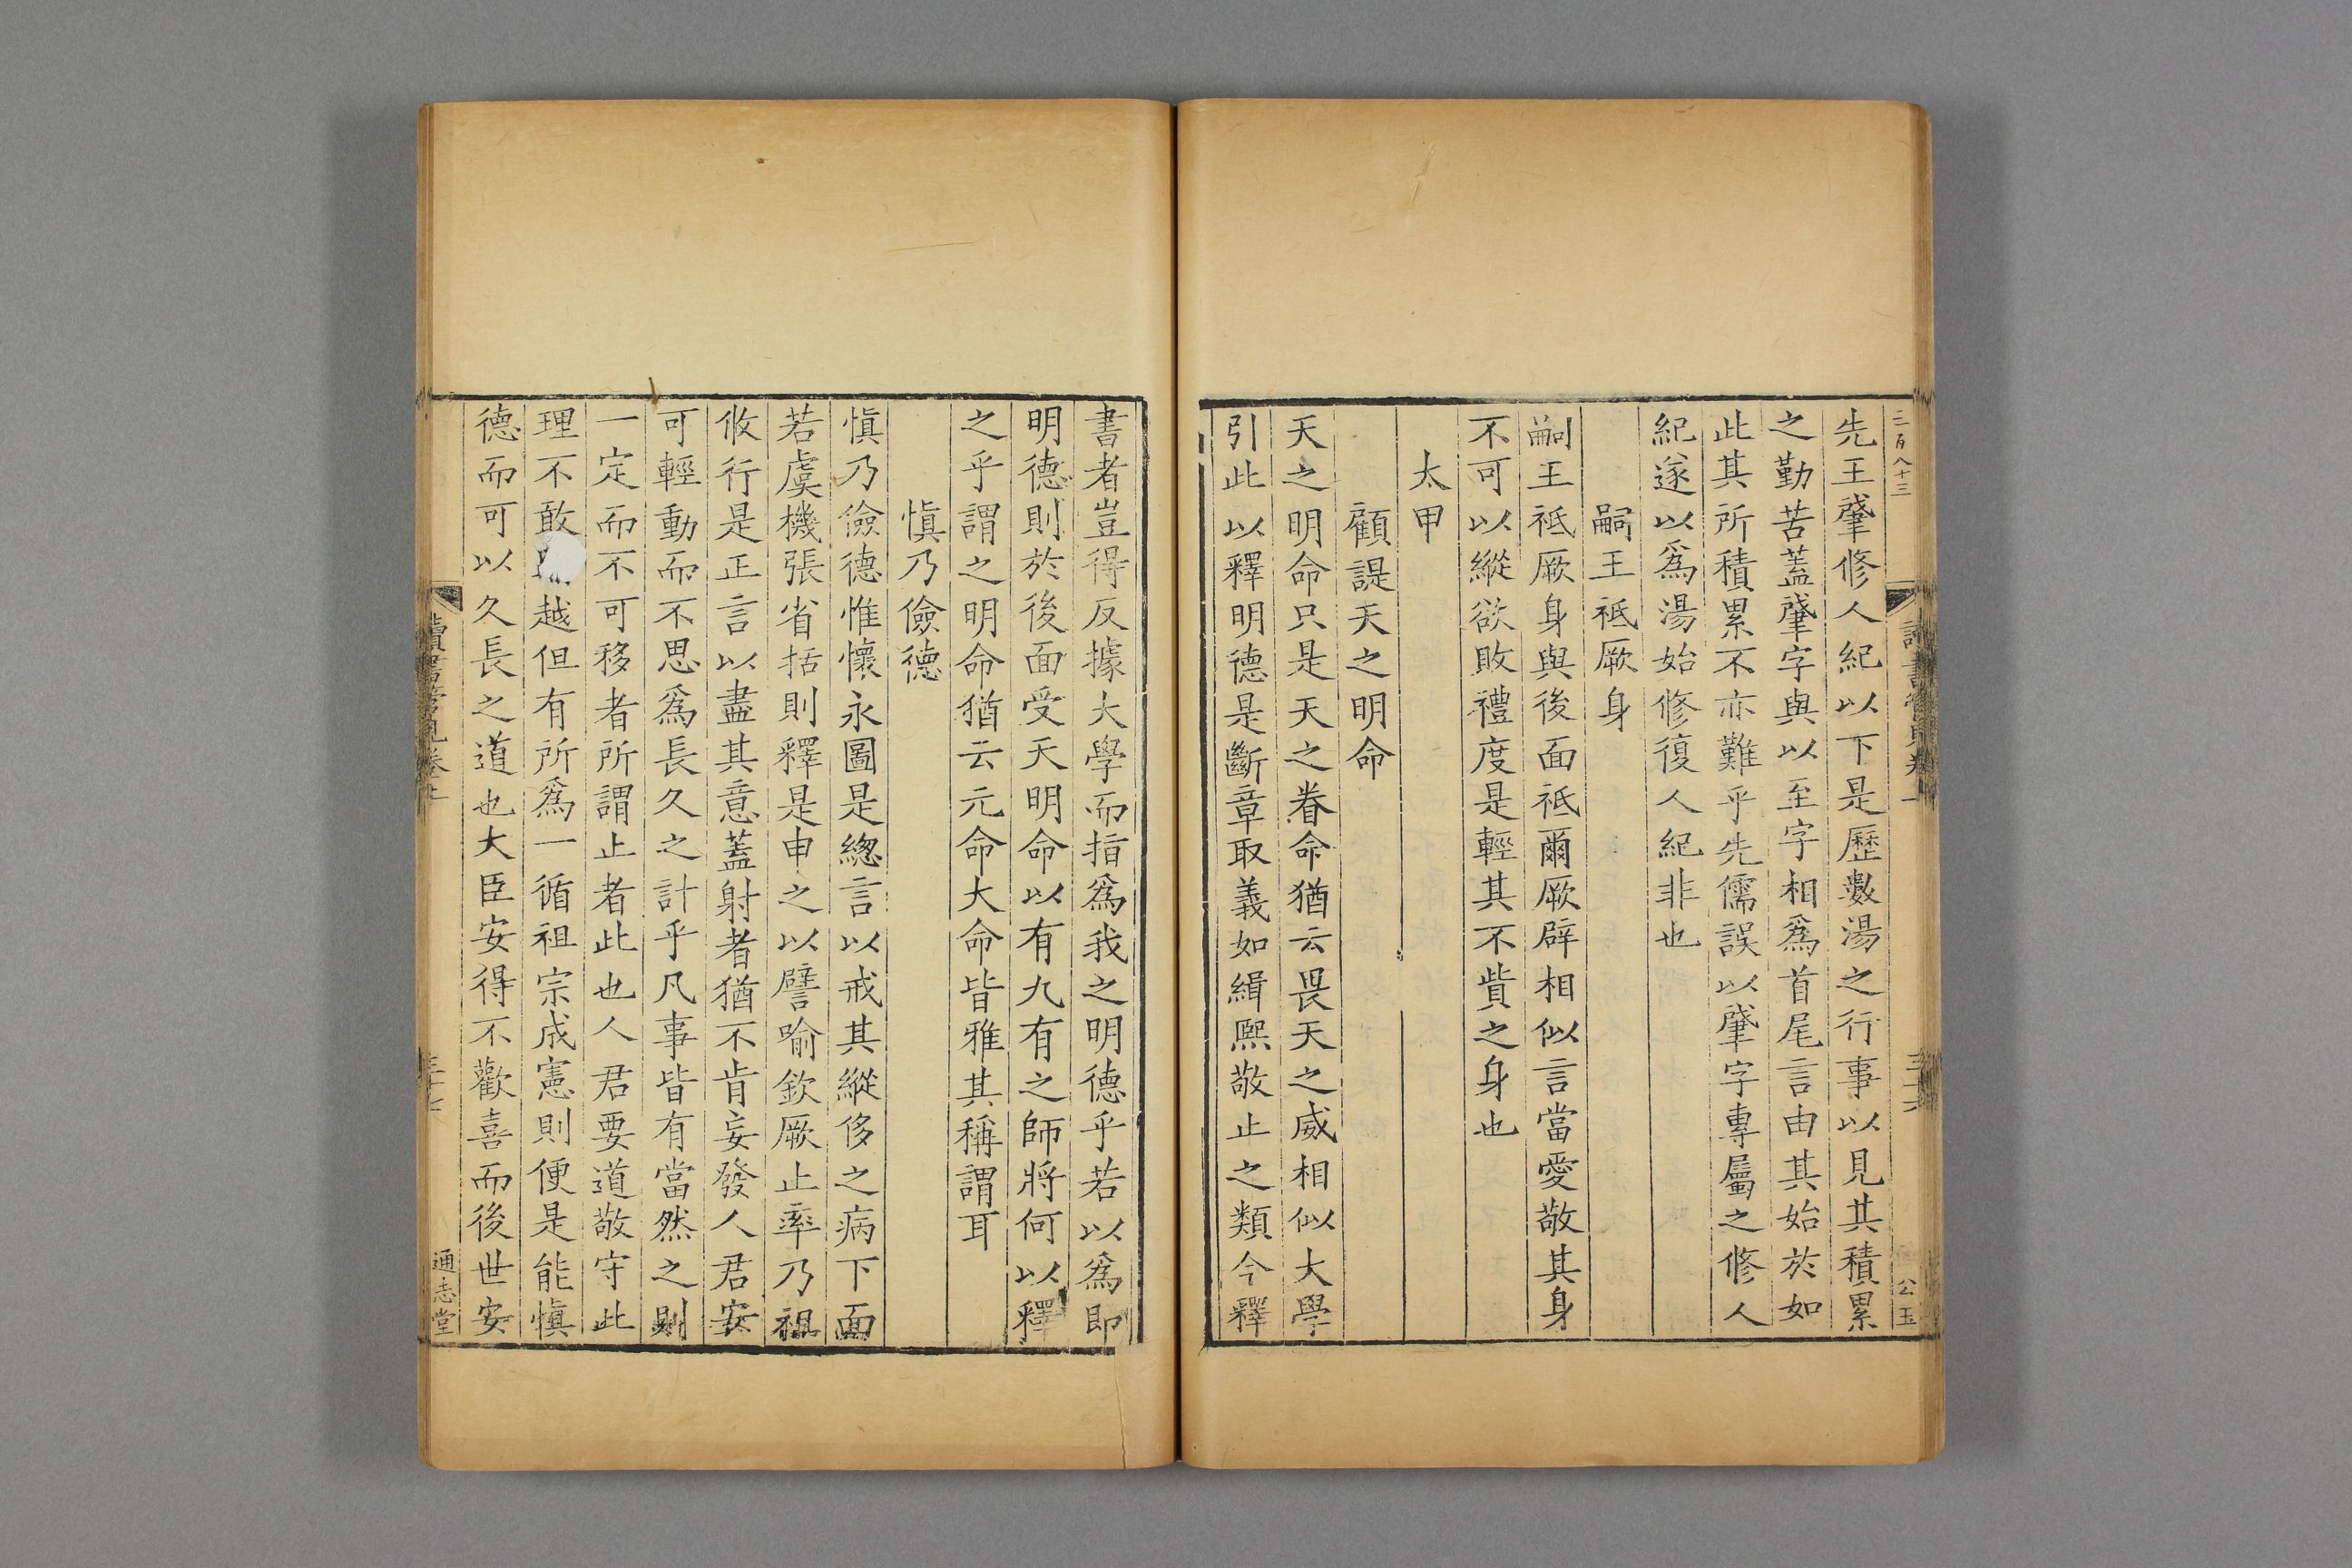 二百八十三
公玉
先王肈修人紀以下是歷數湯之行事以見其積累
之勤苦蓋肈字與以至字相爲首尾言由其始於如
此其所積累不亦難乎先儒誤以肈字專屬之修人
紀遂以爲湯始修復人紀非也
嗣王祗厥身
嗣王祗厥身與後面祗爾厥辟相似言當愛敬其身
不可以縱欲敗禮度是輕其不貲之身也
太甲
顧諟天之明命
天之明命只是天之眷命猶云畏天之威相似大學
引此以釋明德是斷章取義如緝熙敬止之類今釋
書者豈得反據大學而指爲我之明德乎若以爲即
明德則於後面受天明命以有九有之師將何以釋
之乎謂之明命猶云元命大命皆雅其稱謂耳
愼乃儉德
愼乃儉德惟懷永圖是緫言以戒其縱侈之病下面
若虞機張省括則釋是申之以譬喻欽厥止率乃祖
攸行是正言以盡其意蓋射者猶不肯妄發人君安
可輕動而不思爲長久之計乎凡事皆有當然之則
一定而不可移者所謂止者此也人君要道敬守此
理不敢越但有所爲一循祖宗成憲則便是能愼
德而可以久長之道也大臣安得不歡喜而後世安
讀書管見卷上
通志堂